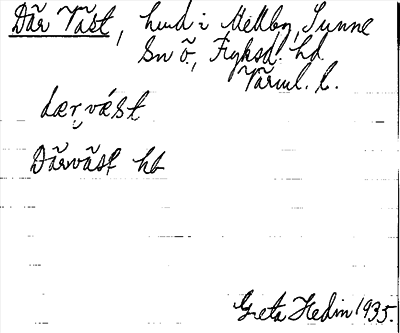 Där Väst, hmd i Mellby, Sunne
Sn Ö., Fryksd. hd.
Värml. l.
dær væ̀st
Därväst hb
Greta Hedin 1935.